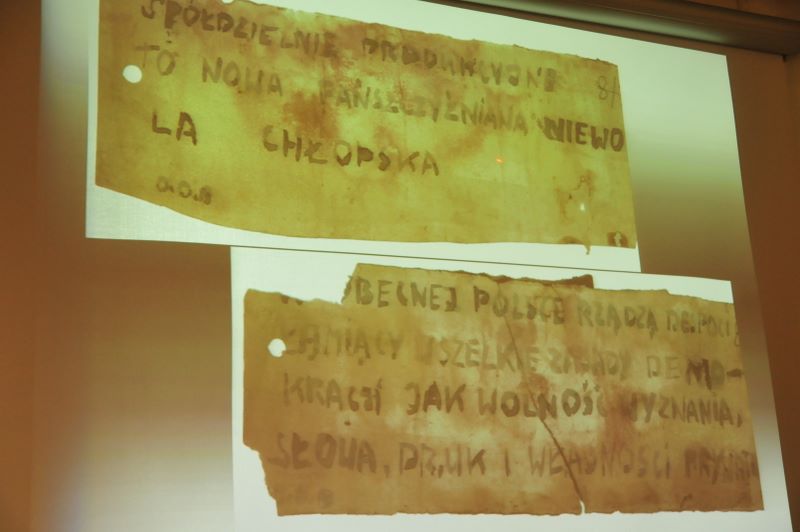 SPÓŁDZIELNIE PRODUKCYJNE 81
TO NOWA PAŃSZCZYŹNIANA NIEWO
LA CHŁOPSKA
W OBECNEJ POLSCE RZĄDZĄ DESPOCI
ŁAMIĄCY WSZELKIE ZASADY DEMO-
KRACJI JAK WOLNOŚĆ WYZNANIA,
SŁOWA, DRUK I WŁASNOŚCI PRYWATN